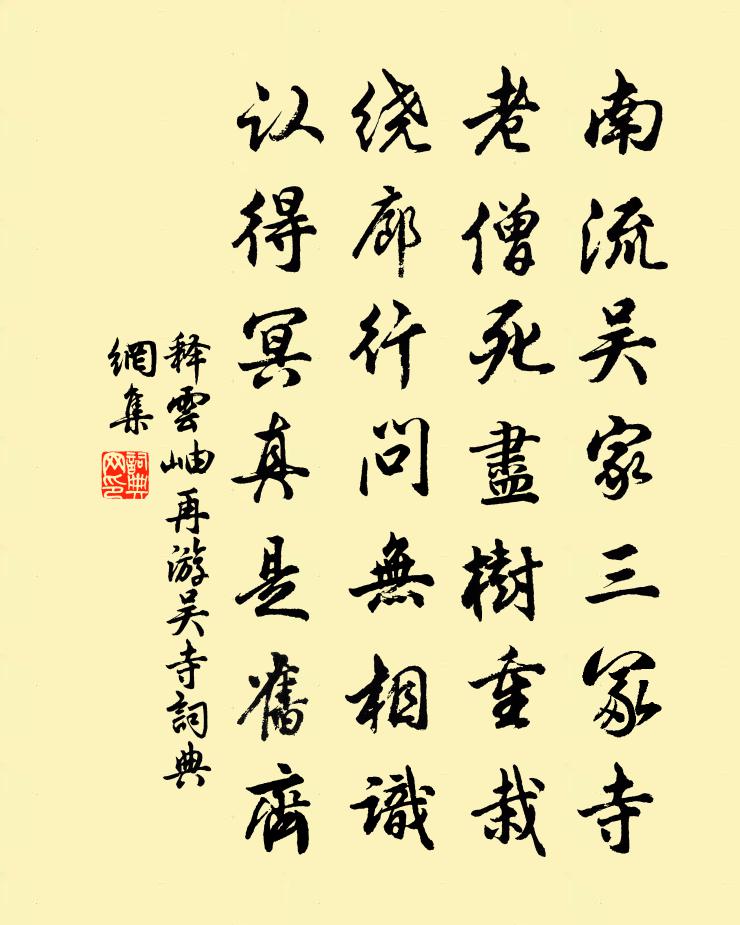 南流吴家三冢寺
老僧死盡樹重栽
绕廊行问無相識
认得冥真是舊齋
释雲岫再游吴寺詞典
網集
詞典
网印